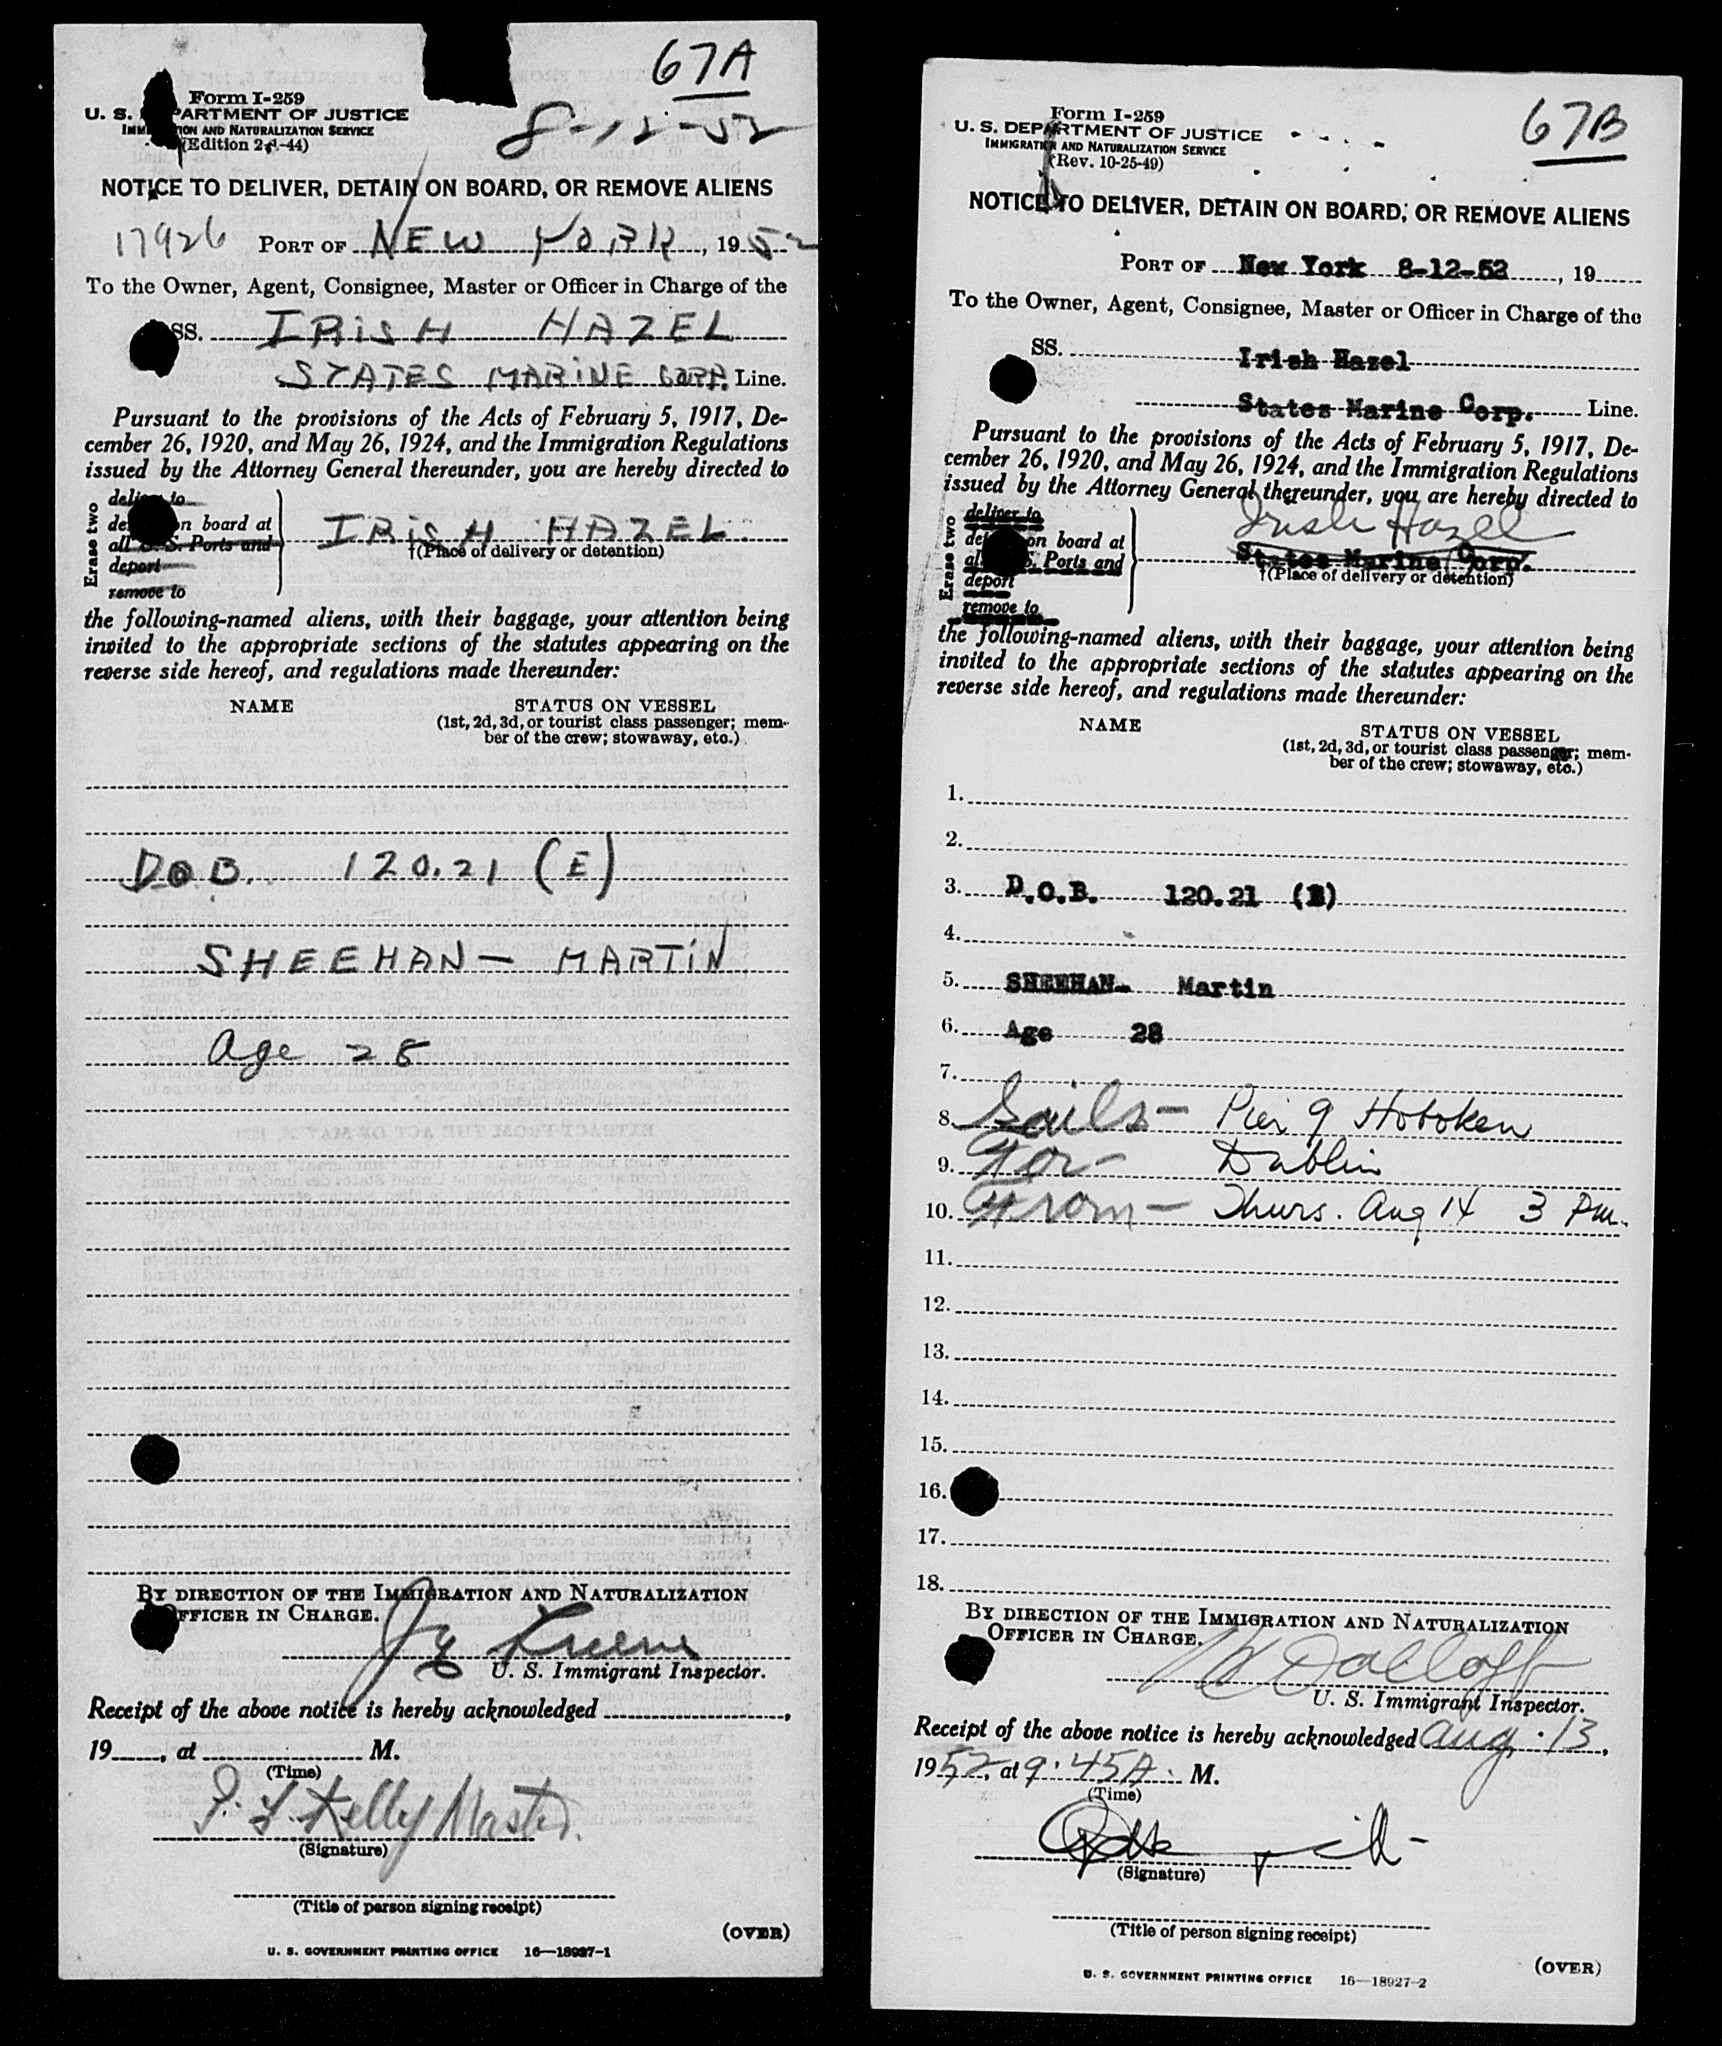 67A
Form I-259
U. S. DEPARTMENT OF JUSTICE
IMMIGRATION AND NATURALIZATION SERVICE
(Edition 2-1-44)
8-12-52
NOTICE TO DELIVER, DETAIN ON BOARD, OR REMOVE ALIENS
17926 PORT OF NEW YORK, 1952
To the Owner, Agent, Consignee, Master or Officer in Charge of the
SS. IRISH HAZEL
STATES MARINE CORP. Line.
Pursuant to the provisions of the Acts of February 5, 1917, De-
cember 26, 1920, and May 26, 1924, and the Immigration Regulations
issued by the Attorney General thereunder, you are hereby directed to
Erase two
deliver to
detain on board at
all U. S. Ports and
deport
remove to
IRISH HAZEL.
†(Place of delivery or detention)
the following-named aliens, with their baggage, your attention being
invited to the appropriate sections of the statutes appearing on the
reverse side hereof, and regulations made thereunder:
NAME STATUS ON VESSEL
(1st, 2d, 3d, or tourist class passenger; mem-
ber of the crew; stowaway, etc.)
D.O.B. 120.21 (E)
SHEEHAN - MARTIN
Age 28
BY DIRECTION OF THE IMMIGRATION AND NATURALIZATION
OFFICER IN CHARGE.
U. S. Immigrant Inspector.
Receipt of the above notice is hereby acknowledged ,
19 , at M.
(Time)
Kelly Master
(Signature)
(Title of person signing receipt)
(OVER)
U. S. GOVERNMENT PRINTING OFFICE 16—18927-1
67B
Form I-259
U. S. DEPARTMENT OF JUSTICE
IMMIGRATION AND NATURALIZATION SERVICE
(Rev. 10-25-49)
NOTICE TO DELIVER, DETAIN ON BOARD, OR REMOVE ALIENS
PORT OF New York 8-12-52, 19
To the Owner, Agent, Consignee, Master or Officer in Charge of the
SS. Irish Hazel
States Marine Corp. Line.
Pursuant to the provisions of the Acts of February 5, 1917, De-
cember 26, 1920, and May 26, 1924, and the Immigration Regulations
issued by the Attorney General thereunder, you are hereby directed to
Erase two
deliver to
detain on board at
all U. S. Ports and
deport
remove to
Irish Hazel
States Marine Corp.
†(Place of delivery or detention)
the following-named aliens, with their baggage, your attention being
invited to the appropriate sections of the statutes appearing on the
reverse side hereof, and regulations made thereunder:
NAME STATUS ON VESSEL
(1st, 2d, 3d, or tourist class passenger; mem-
ber of the crew; stowaway, etc.)
1.
2.
3. D.O.B. 120.21 (E)
4.
5. SHEEHAN- Martin
6. Age 28
7.
8. Sails - Pier 9 Hoboken
9. For - Dublin
10. From - Thurs. Aug 14 3 Pm.
11.
12.
13.
14.
15.
16.
17.
18.
BY DIRECTION OF THE IMMIGRATION AND NATURALIZATION
OFFICER IN CHARGE.
U. S. Immigrant Inspector.
Receipt of the above notice is hereby acknowledged Aug. 13,
1952, at 9:45A. M.
(Time)
(Signature)
(Title of person signing receipt)
(OVER)
U. S. GOVERNMENT PRINTING OFFICE 16—18927-2